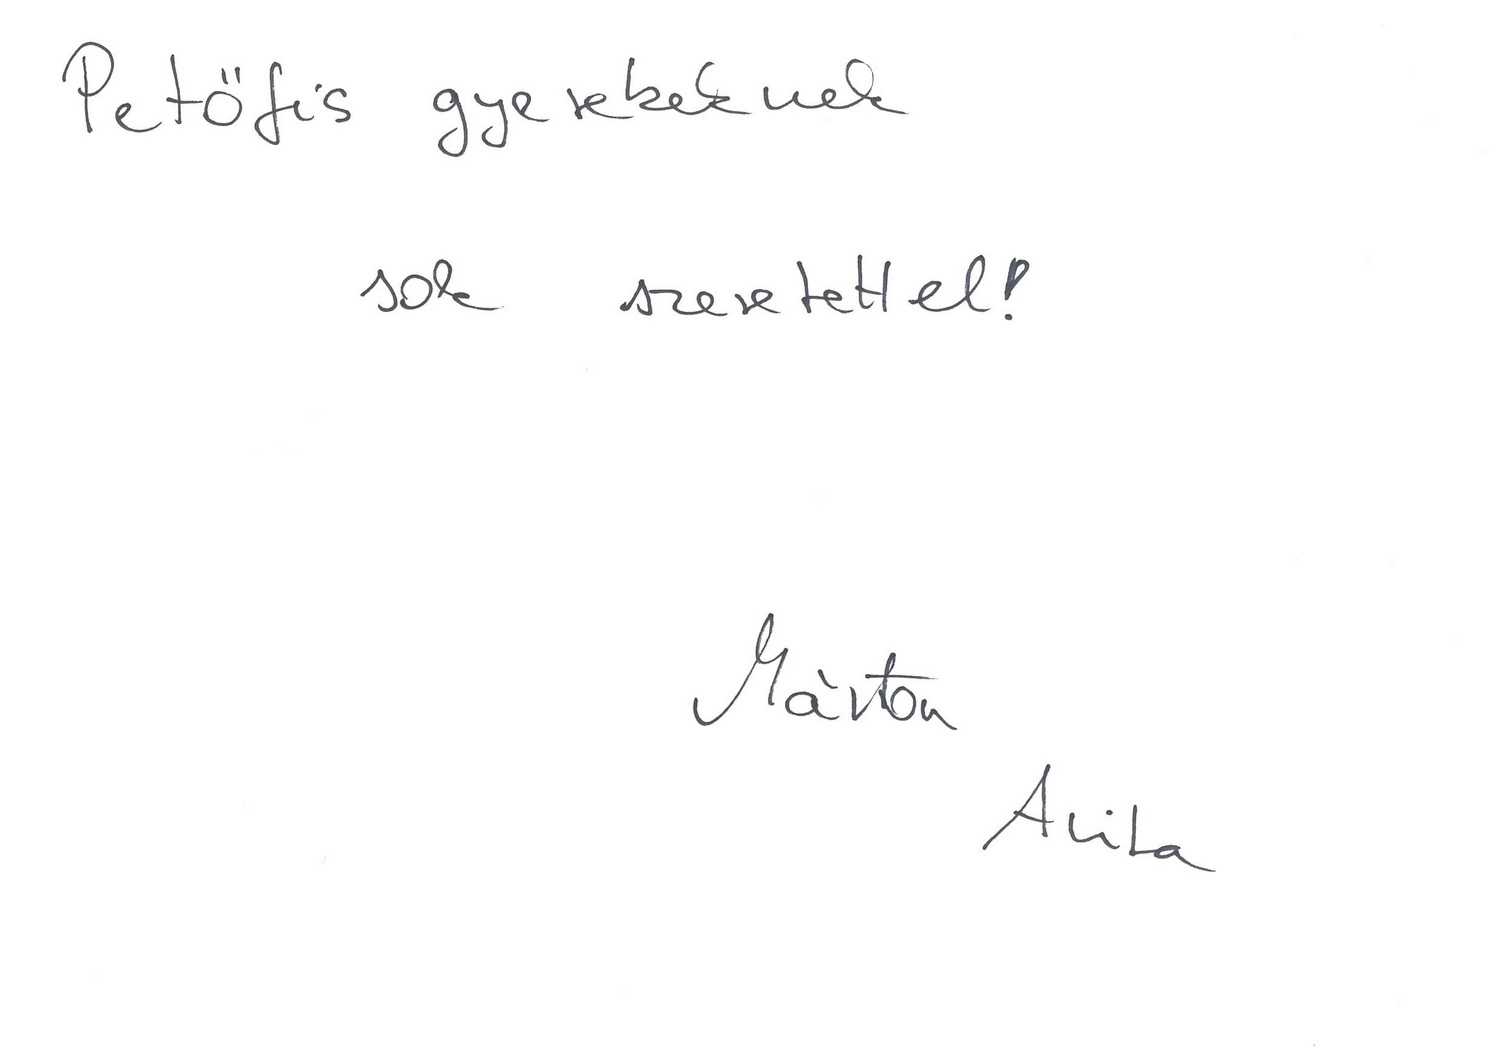 Petőfis gyerekeknek
sok szeretettel!
Márton
Anita